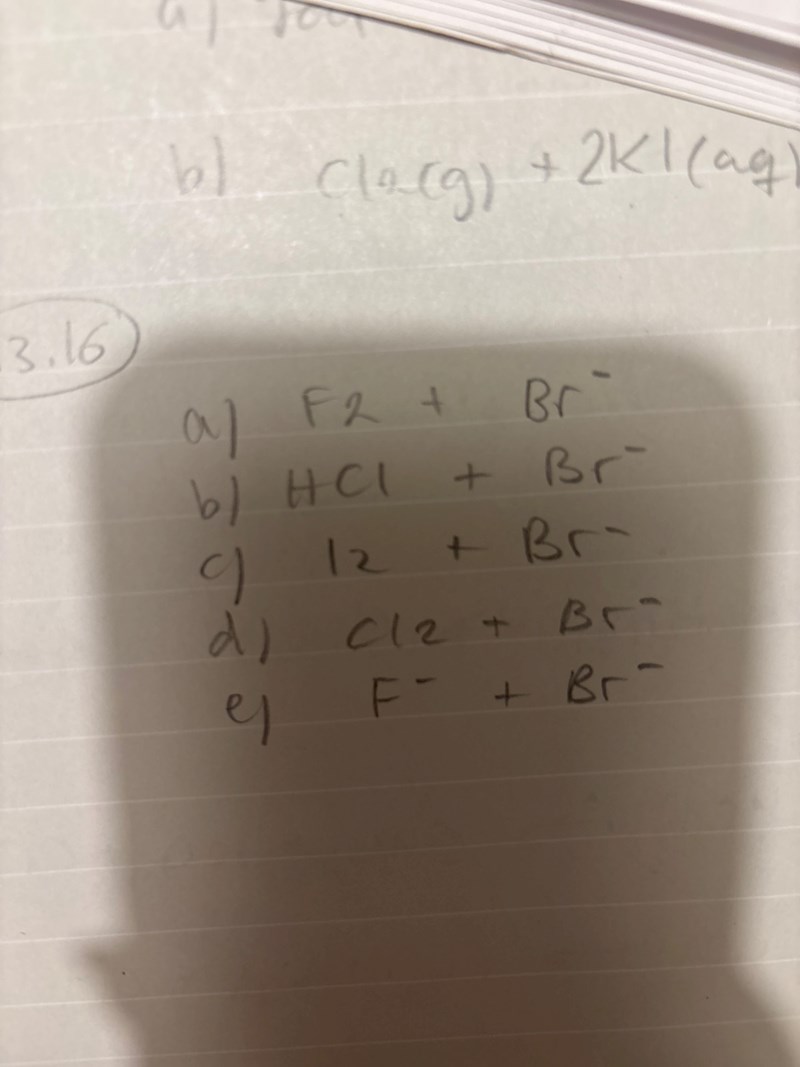 b) Cl2(g) + 2KI(aq)
3.16
a) F2 + Br⁻
b) HCl + Br⁻
c) I2 + Br⁻
d) Cl2 + Br⁻
e) F⁻ + Br⁻